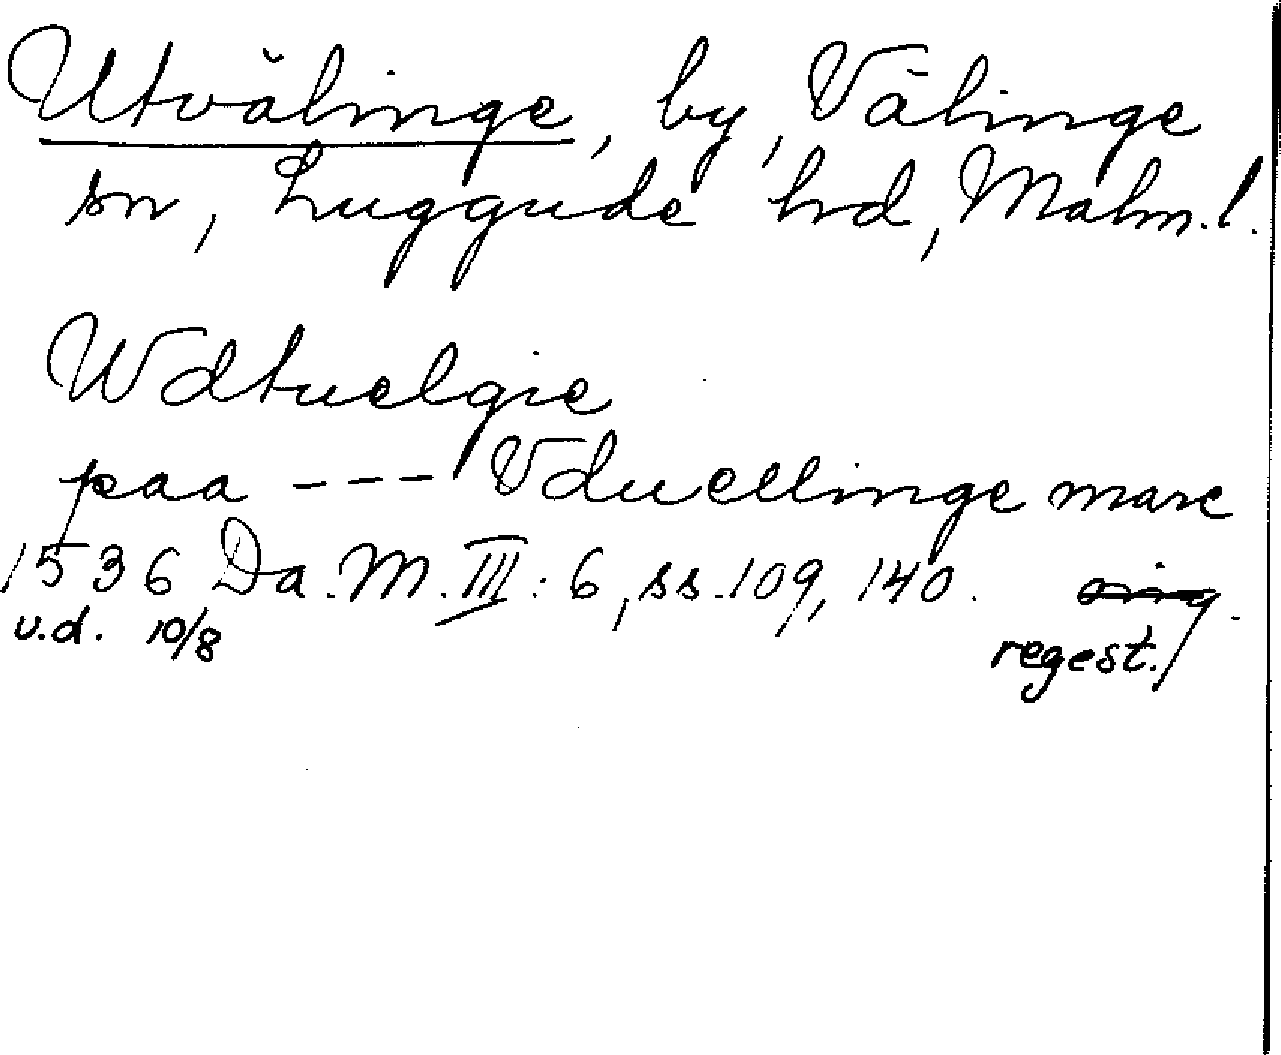 Utvälinge, by, Välinge
sn, Luggude hrd, Malm.l.
Wdtuelgie
paa --- Vduellinge mare
1536 Da.M.III:6, ss.109, 140. orig.
u.d. 10/8
regest.